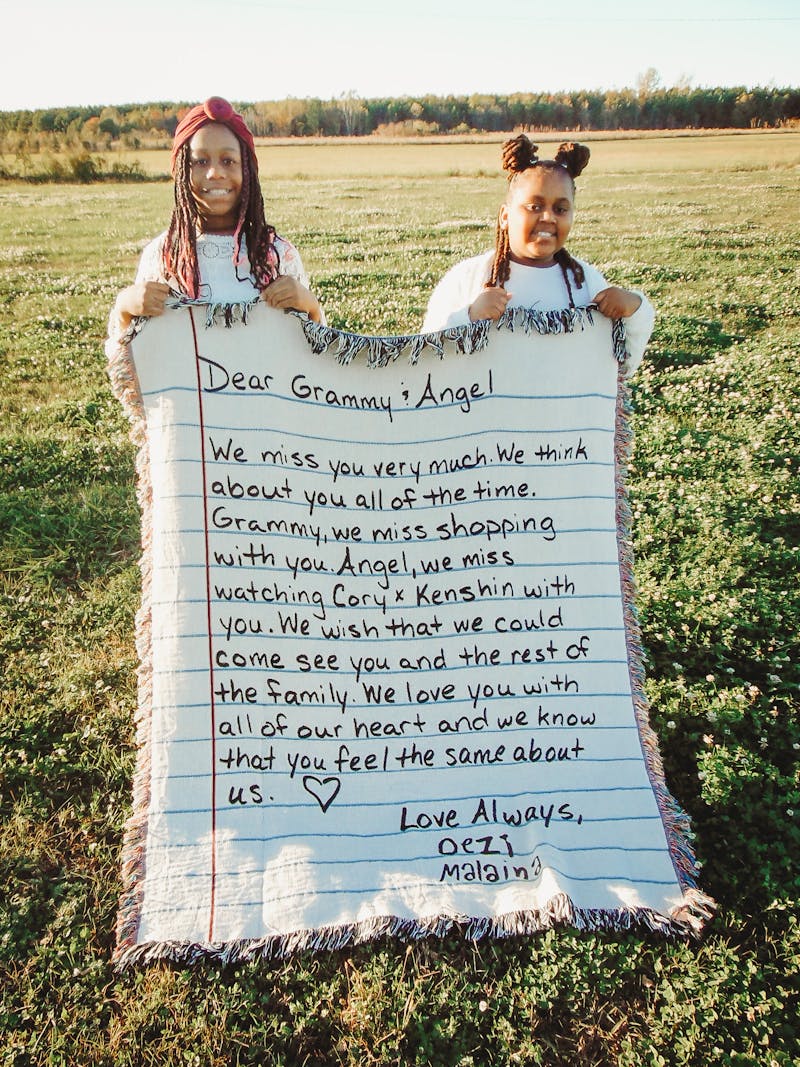 Dear Grammy & Angel
We miss you very much. We think
about you all of the time.
Grammy, we miss shopping
with you. Angel, we miss
watching Cory x Kenshin with
you. We wish that we could
come see you and the rest of
the family. We love you with
all of our heart and we know
that you feel the same about
us. ♡
Love Always,
Dezi
Malaina